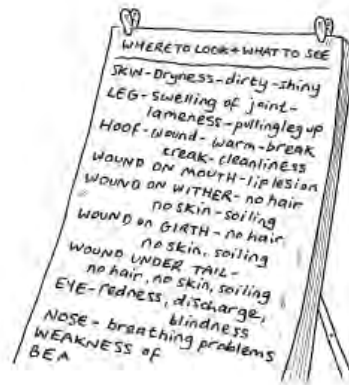 WHERE TO LOOK + WHAT TO SEE
SKIN - Dryness - dirty - shiny
LEG - swelling of joint -
lameness - pulling leg up
HOOF - wound - warm - break
creak - cleanliness
WOUND ON MOUTH - lip lesion
WOUND ON WITHER - no hair
no skin - soiling
WOUND ON GIRTH - no hair,
no skin, soiling
WOUND UNDER TAIL -
no hair, no skin, soiling
EYE - redness, discharge,
blindness
NOSE - breathing problems
WEAKNESS of
BEA